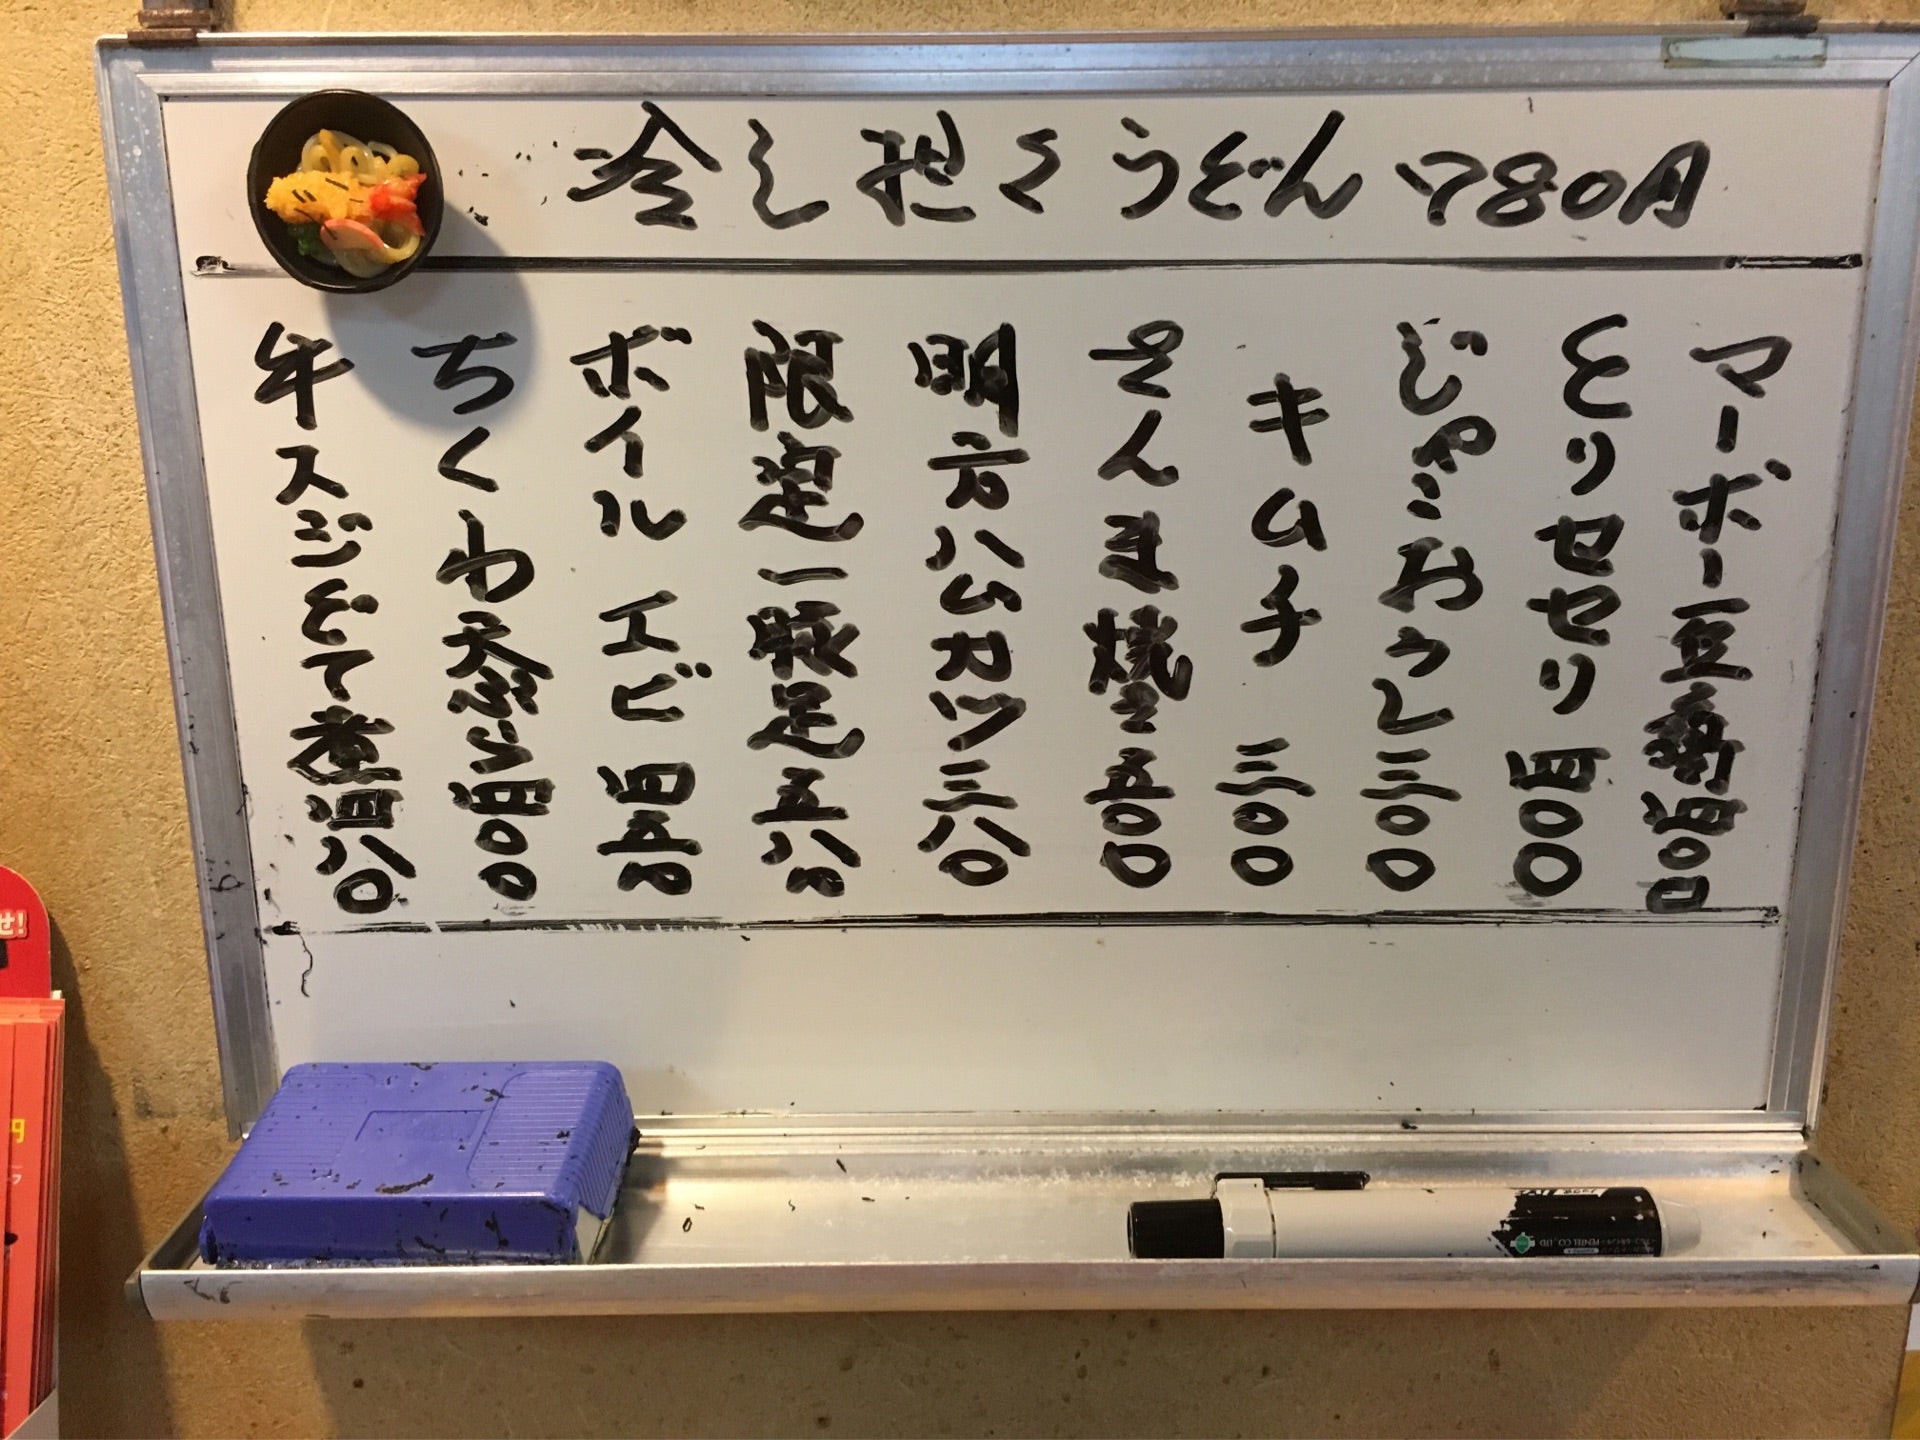 冷し担々うどん 780円
マーボー豆腐 四〇〇
とりセセリ 四〇〇
じゃこおろし 三〇〇
キムチ 三〇〇
さんま焼き 五〇〇
明方ハムカツ 三八〇
限定一豚足 五八〇
ボイルエビ 四八〇
ちくわ天ぷら 四〇〇
牛スジどて煮 四八〇
せ!
PENTEL CO., LTD